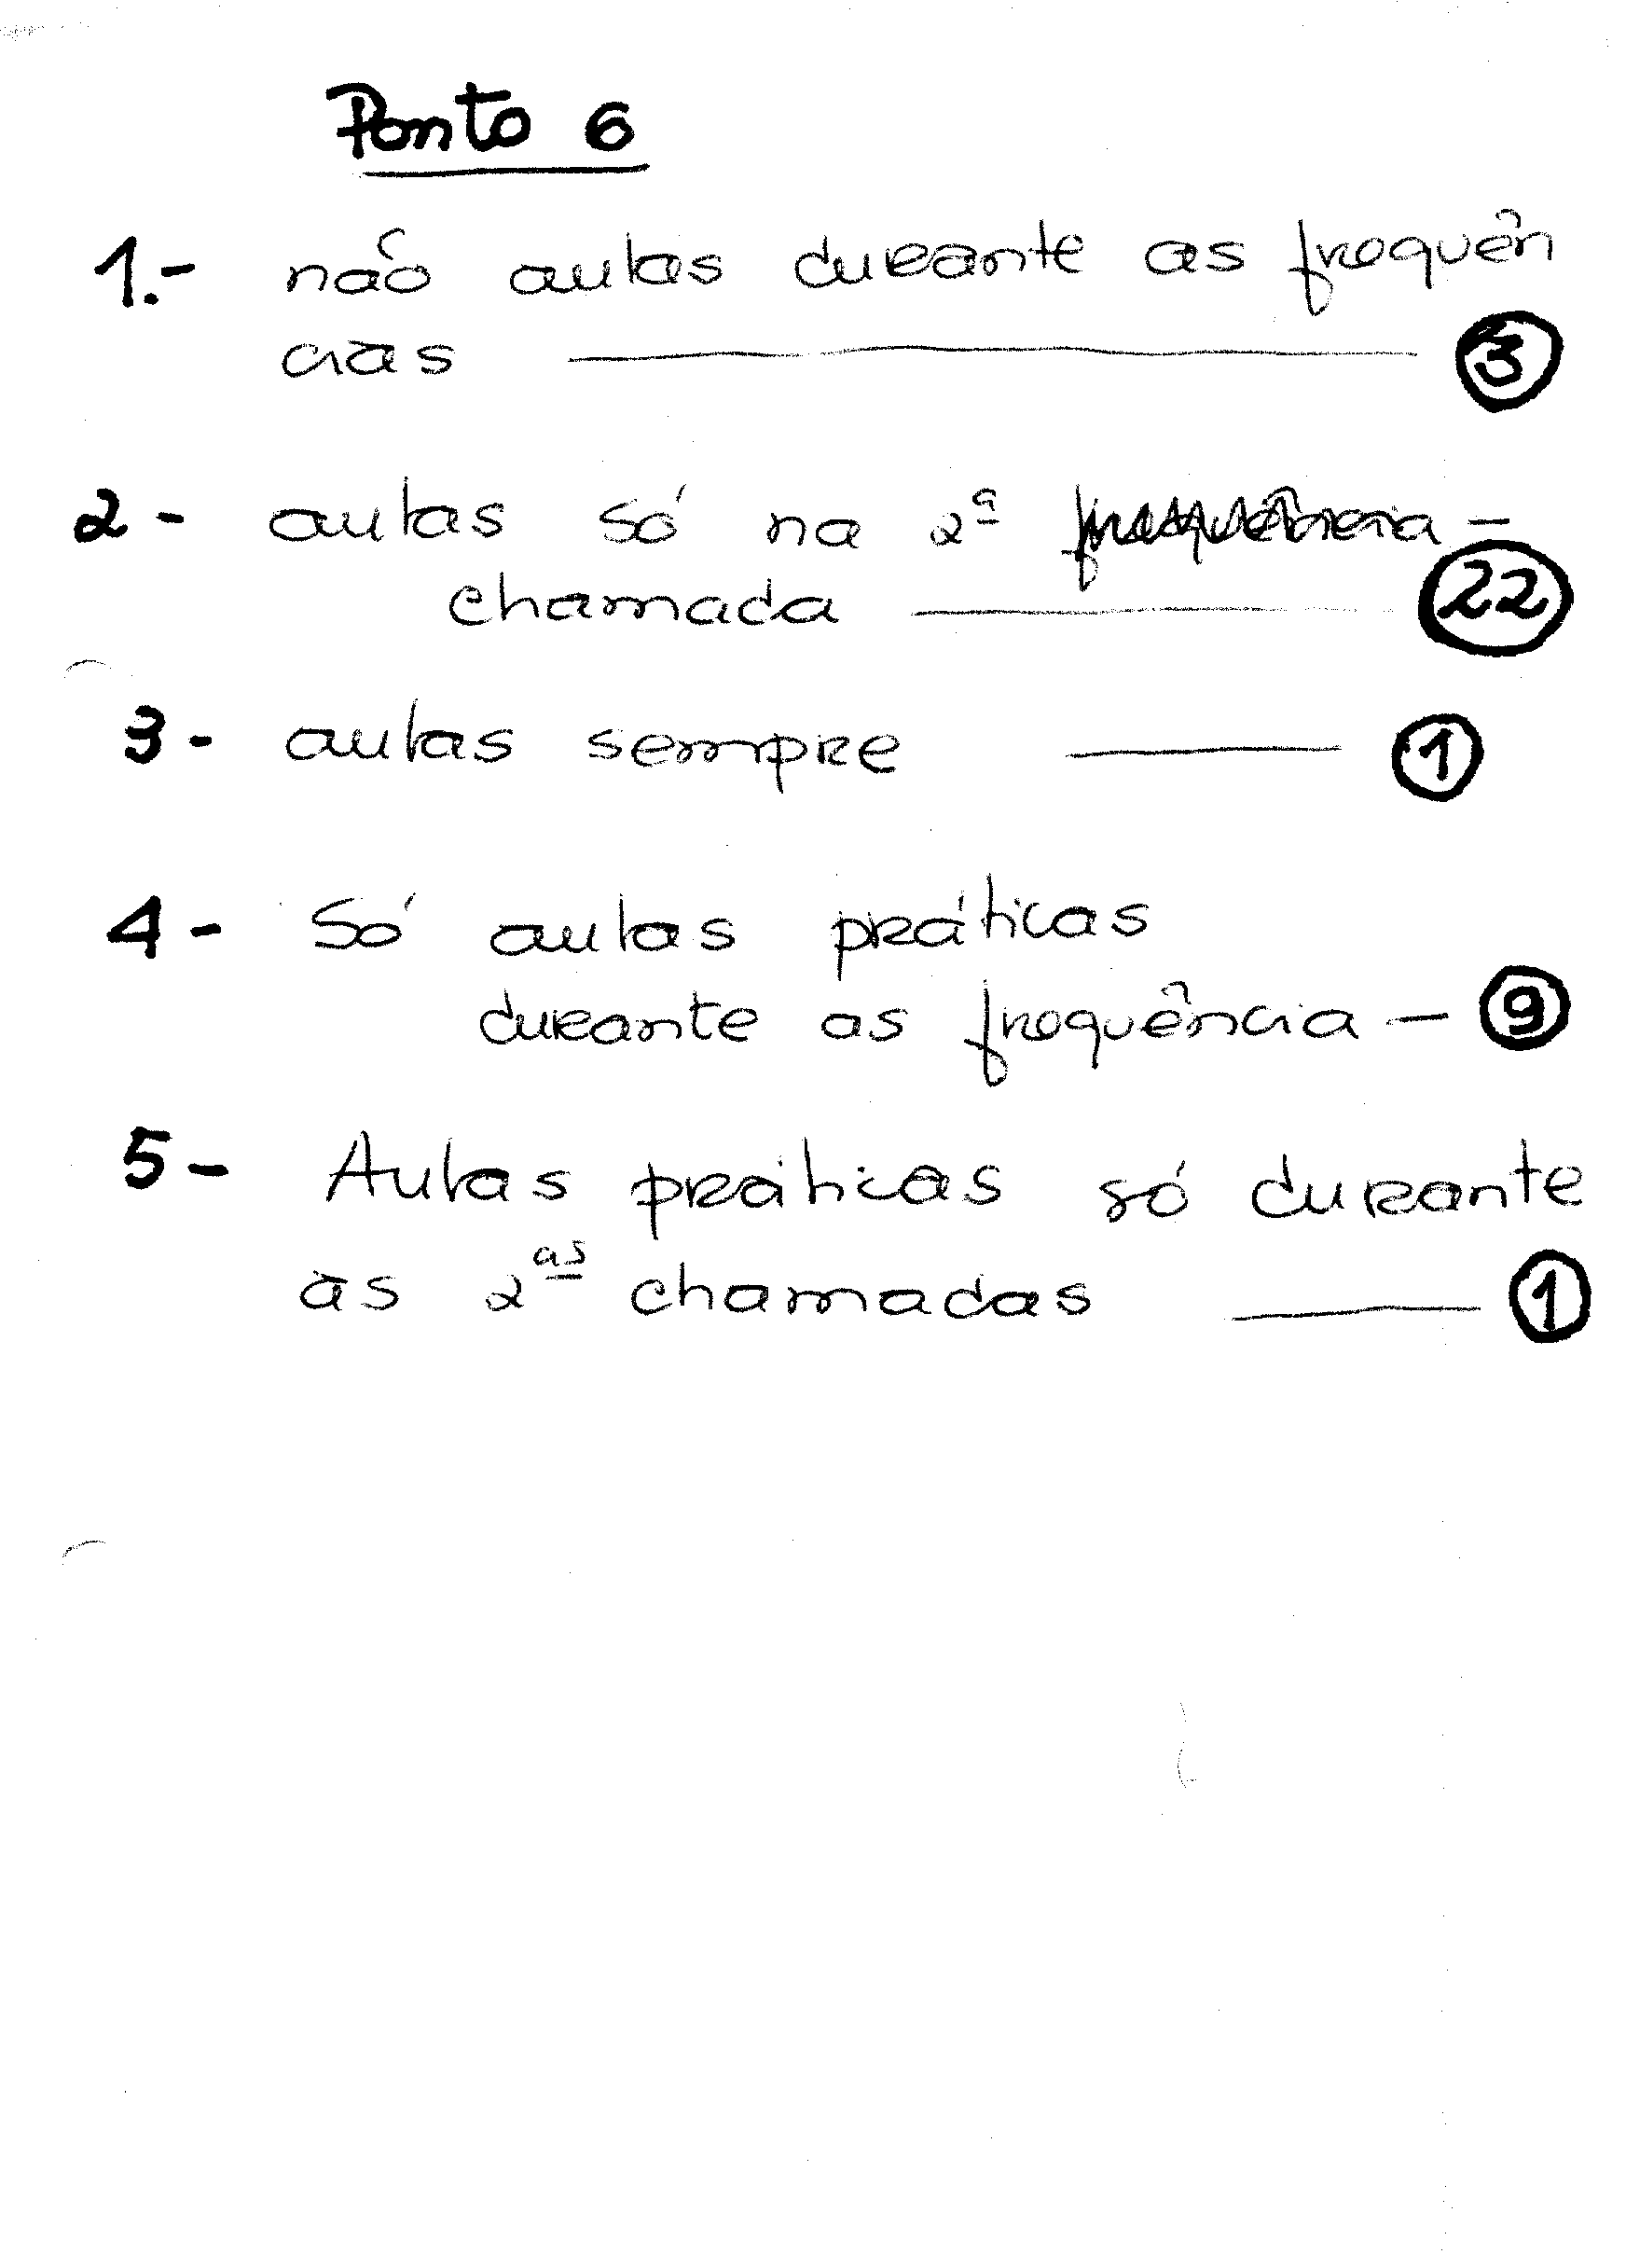 Ponto 6
1.- não aulas durante as frequên
cias ③
2 - aulas só na 2ª frequência -
chamada ㉒
3 - aulas sempre ①
4 - Só aulas práticas
durante as frequência - ⑨
5 - Aulas práticas só durante
as 2as chamadas ①